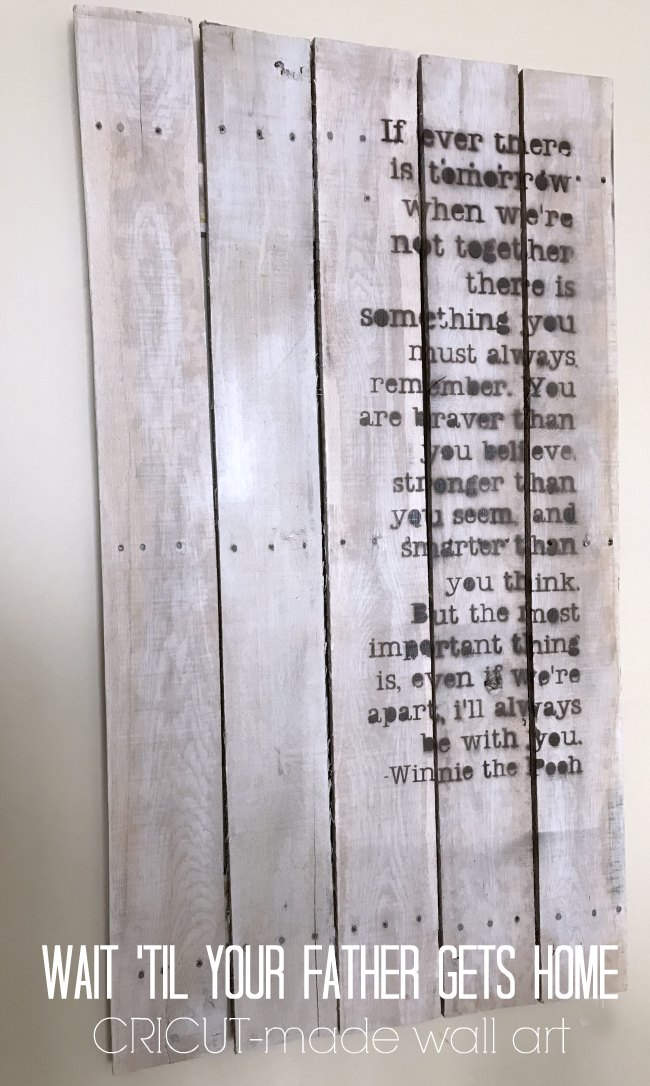 If ever there
is tomorrow
when we're
not together
there is
something you
must always
remember. You
are braver than
you believe,
stronger than
you seem, and
smarter than
you think.
But the most
important thing
is, even if we're
apart, i'll always
be with you.
-Winnie the Pooh
WAIT 'TIL YOUR FATHER GETS HOME
CRICUT-made wall art